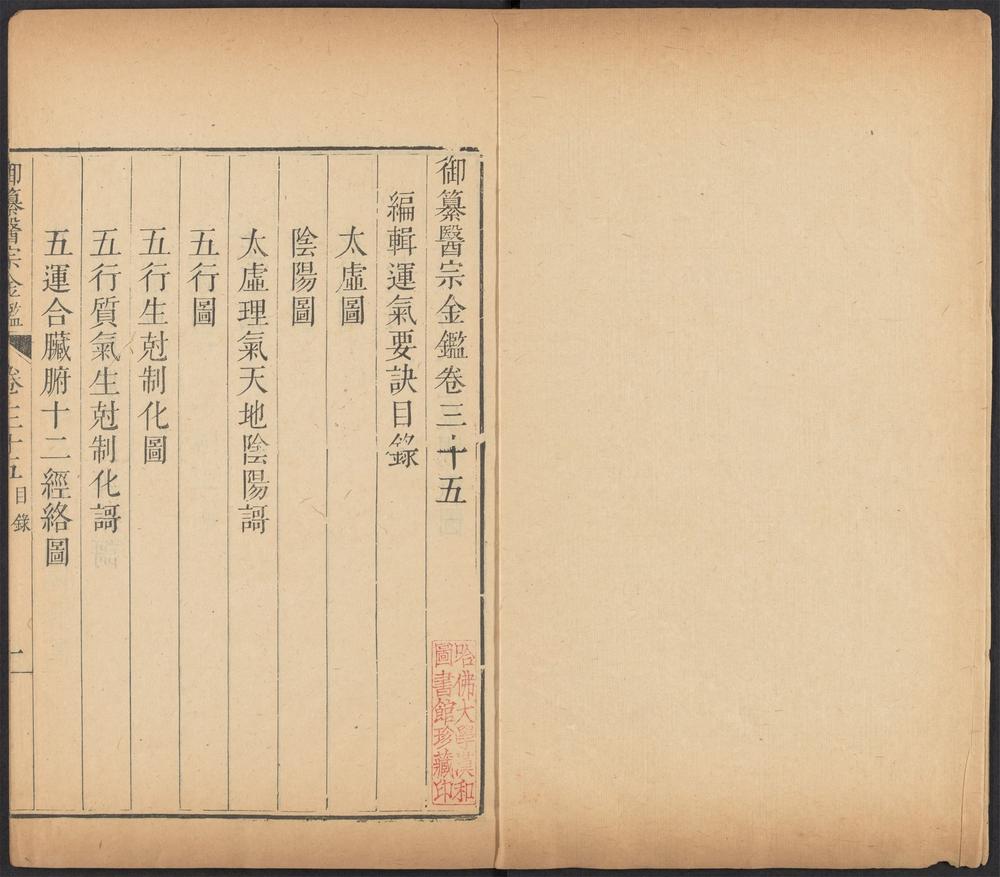 御纂醫宗金鑑卷三十五
編輯運氣要訣目錄
太虛圖
陰陽圖
太虛理氣天地陰陽謌
五行圖
五行生尅制化圖
五行質氣生尅制化謌
五運合臟腑十二經絡圖
御纂醫宗金鑑 卷三十五 目錄 一
哈佛大學漢和
圖書館珍藏印